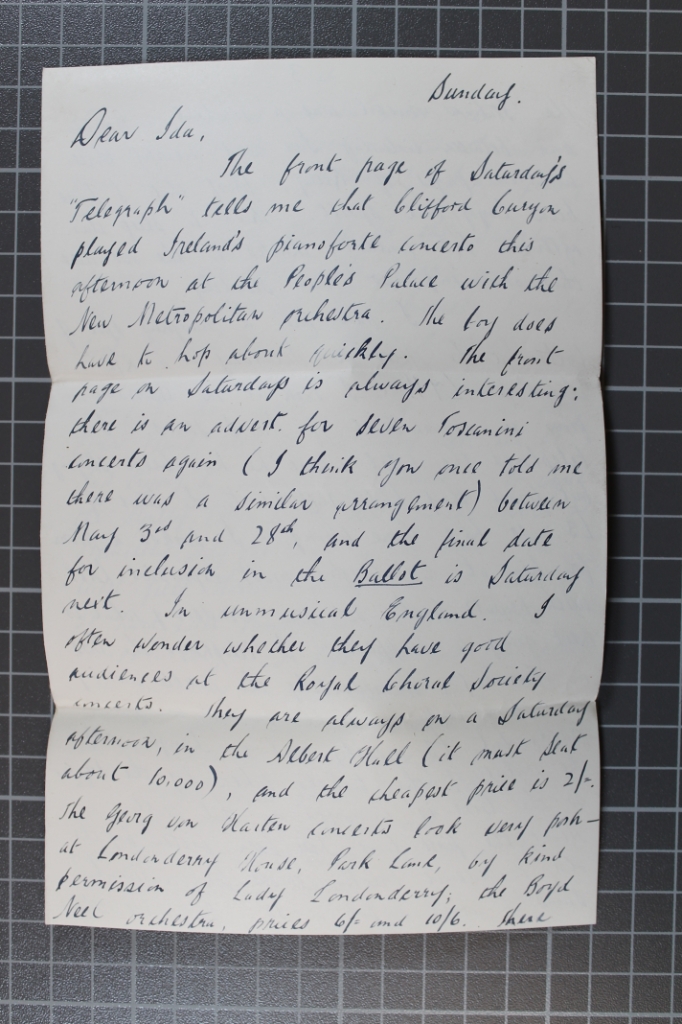 Sunday.
Dear Ida,
The front page of Saturday's
"Telegraph" tells me that Clifford Curzon
played Ireland's pianoforte concerto this
afternoon at the People's Palace with the
New Metropolitan orchestra. The boy does
have to hop about quickly. The front
page on Saturdays is always interesting:
there is an advert. for seven Toscanini
concerts again (I think you once told me
there was a similar arrangement) between
May 3rd and 28th, and the final date
for inclusion in the Ballot is Saturday
next. In unmusical England. I
often wonder whether they have good
audiences at the Royal Choral Society
concerts. They are always on a Saturday
afternoon, in the Albert Hall (it must seat
about 10,000), and the cheapest price is 2/-.
The Georg von Harten concerts look very posh –
at Londonderry House, Park Lane, by kind
permission of Lady Londonderry; the Boyd
Neel orchestra, prices 6/- and 10/6. There